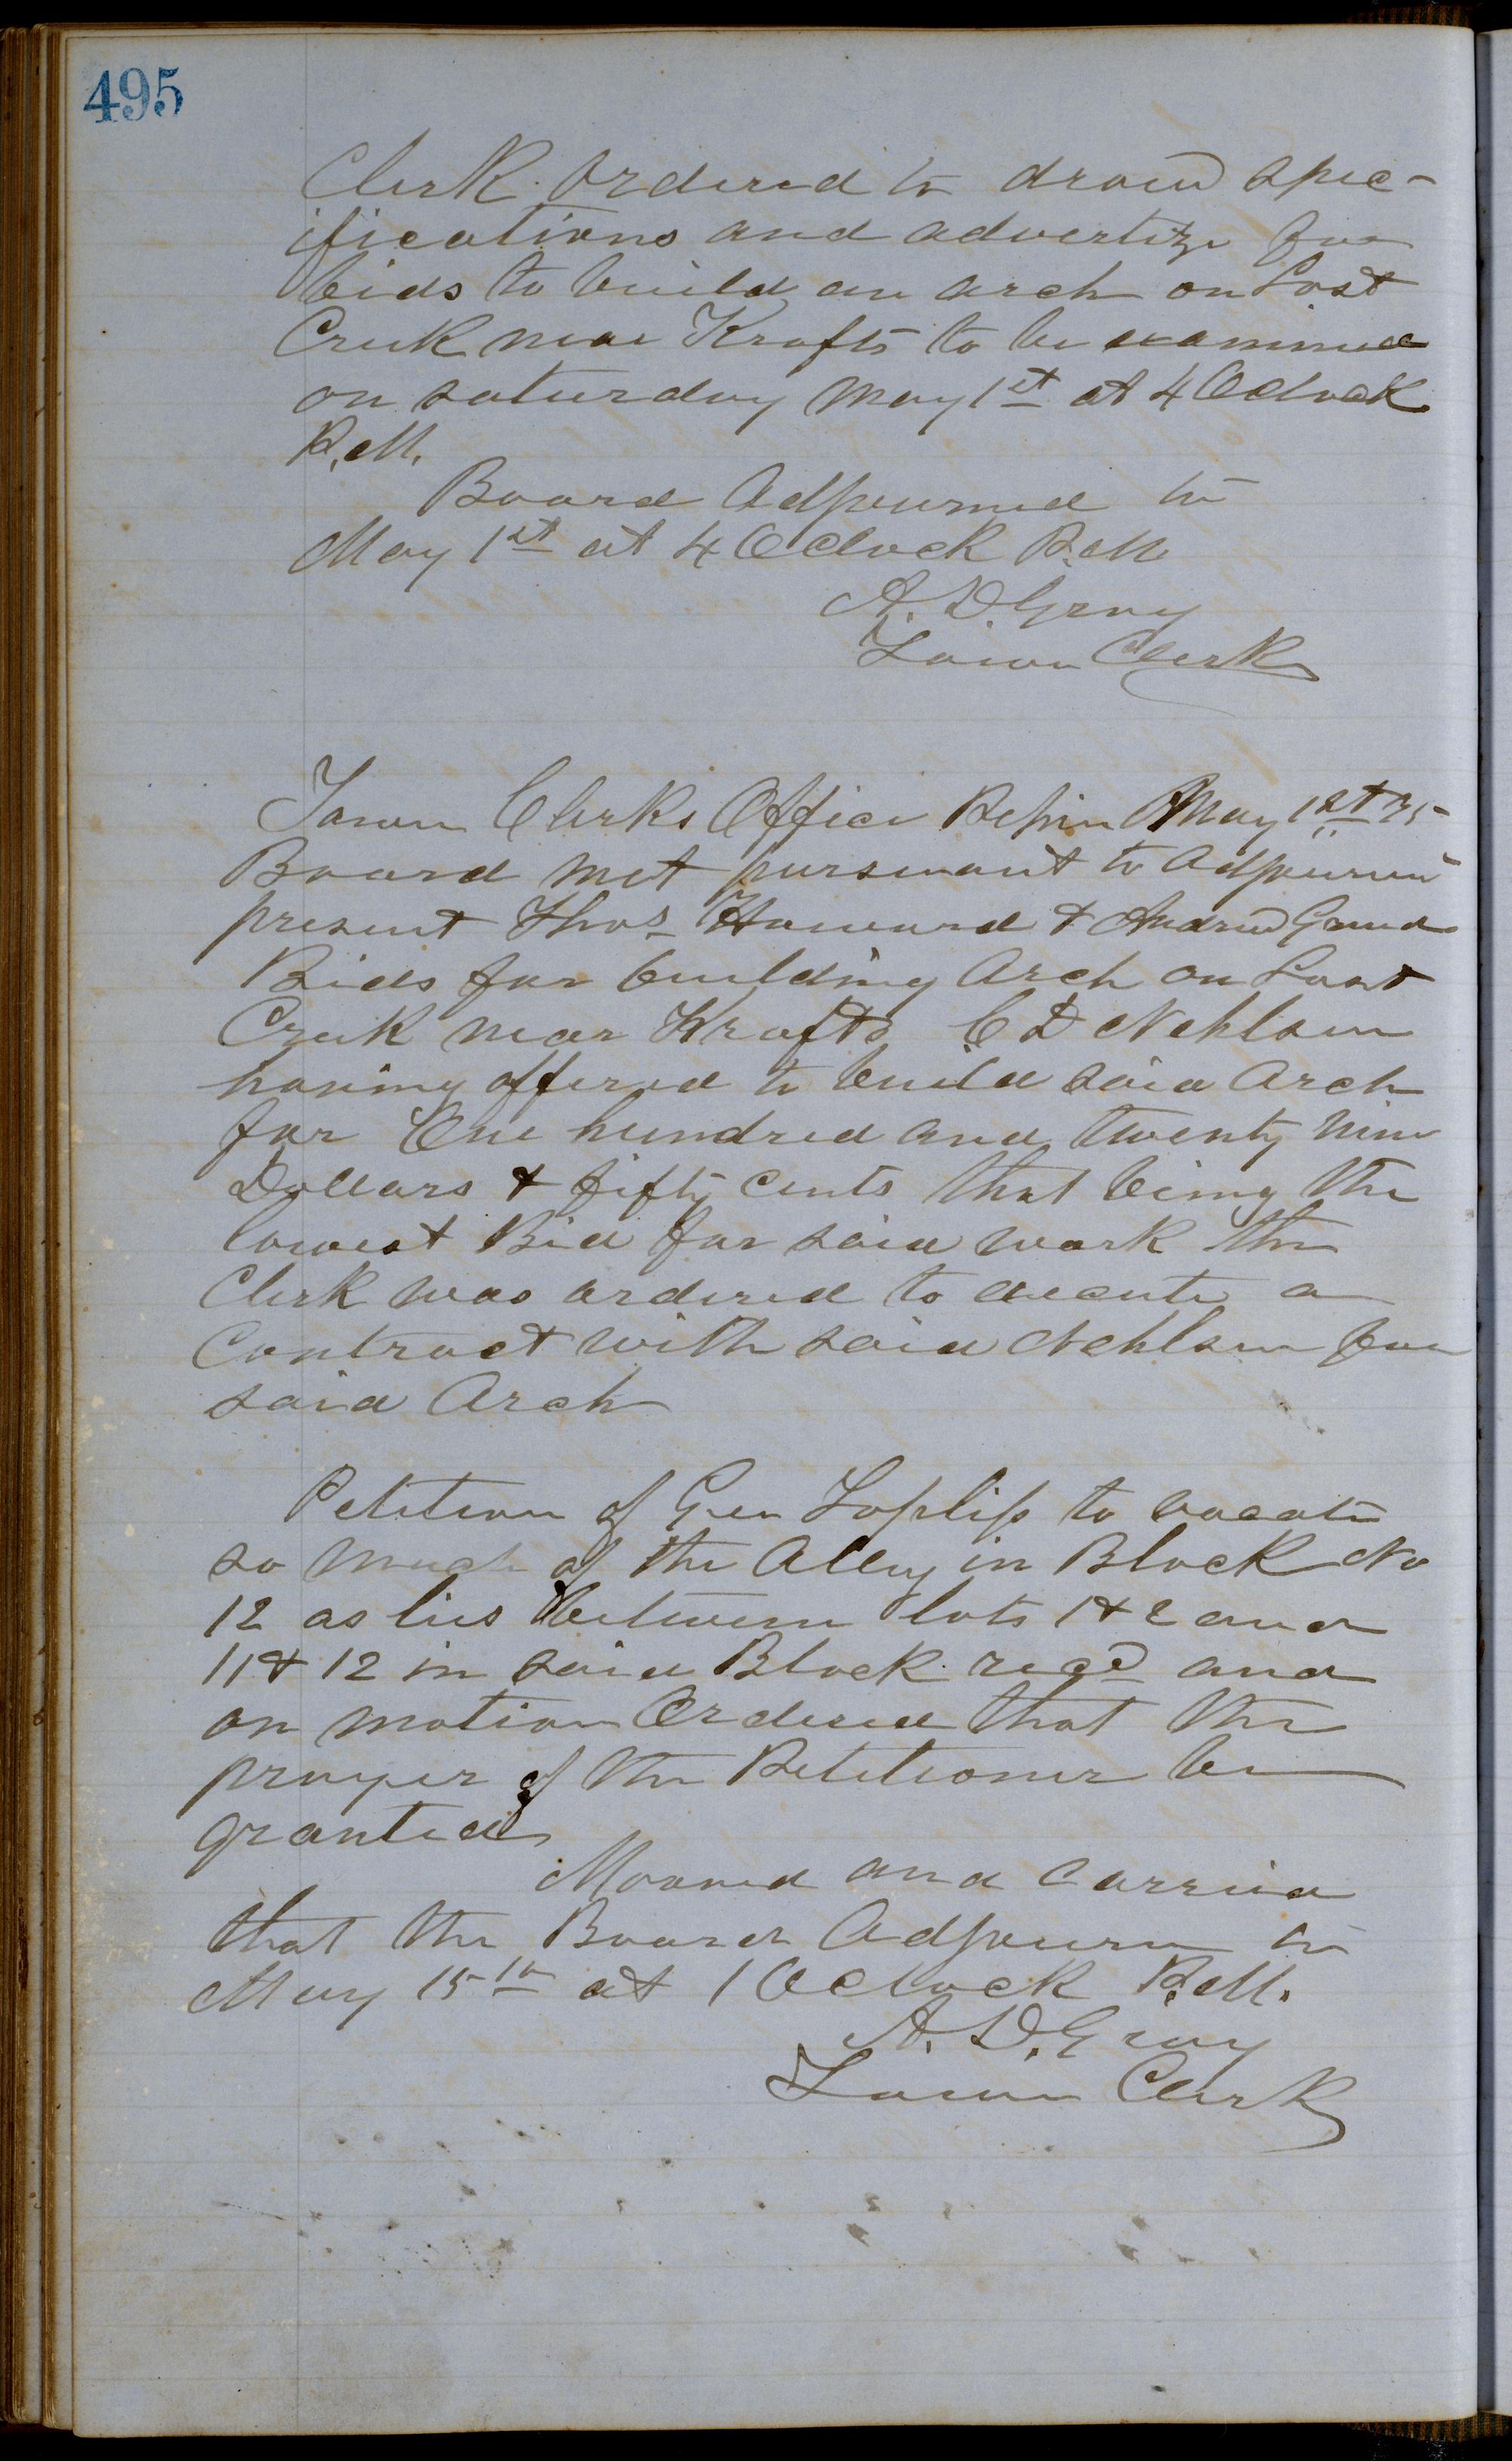 495
Clerk ordered to draw spec-
ifications and advertize for
bids to build an arch on Lost
Creek near Krafts to be examined
on saturday May 1st at 4 Oclock
P.M.
Board Adjourned to
May 1st at 4 Oclock P.M
A. D. Gray
Town Clerk
Town Clerks Office Pepin May 1st 75
Board met pursuant to Adjourn
present Thos Howard & Andrew
Bids for building Arch on Lost
Creek near Krafts C D Nehlsen
having offered to build said Arch
for One hundred and twenty nine
Dollars & fifty cents that being the
lowest Bid for said work the
Clerk was ordered to execute a
Contract with said Nehlsen for
said Arch
Petition of Geo Topliff to vacate
so much of the Alley in Block No
12 as lies between lots 1 & 2 and
11 & 12 in said Block recd and
on motion Ordered that the
prayer of the Petitioner be
granted
Mooved and Carried
that the Board Adjourn to
May 15th at 1 Oclock P.M.
A. D. Gray
Town Clerk